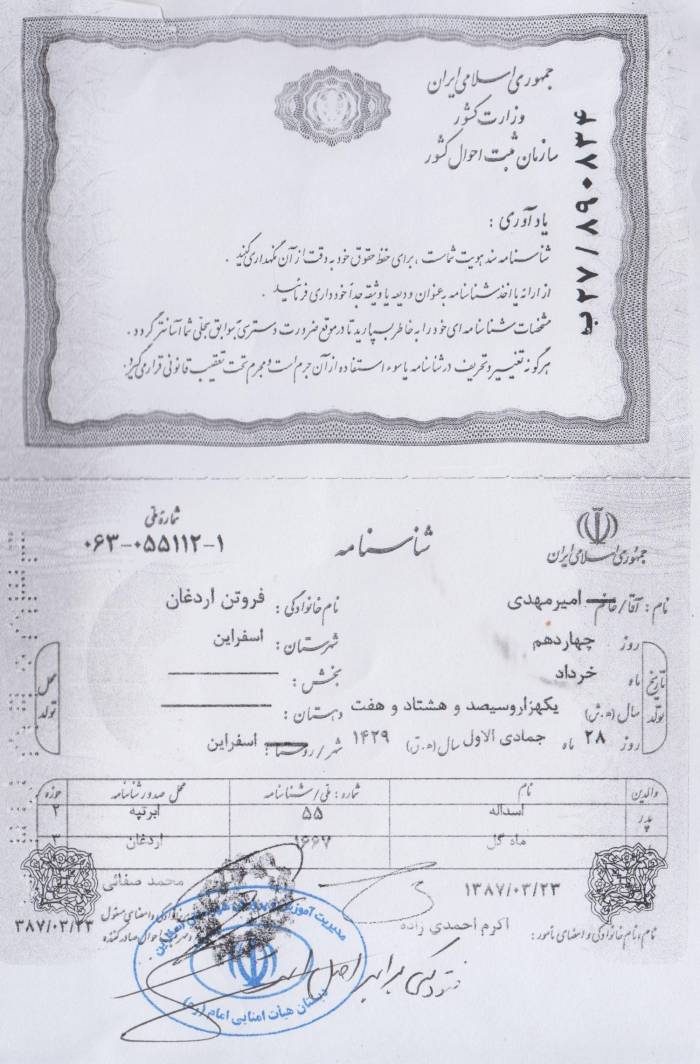 جمهوری اسلامی ایران
وزارت کشور
سازمان ثبت احوال کشور
ب۲۷/۸۹۰۸۳۴
یادآوری :
شناسنامه سند هویت شماست ، برای حفظ حقوق خود به دقت از آن نگهداری کنید .
از ارائه یا اخذ شناسنامه به عنوان ودیعه یا وثیقه جداً خودداری فرمائید .
مشخصات شناسنامه ای خود را به خاطر بسپارید تا در موقع ضرورت دسترسی به سوابق سجلی شما آسانتر گردد .
هرگونه تغییر و تحریف در شناسنامه یا سوء استفاده از آن جرم است و مجرم تحت تعقیب قانونی قرار می‌گیرد .
جمهوری اسلامی ایران
شناسنامه
شماره ملی
۰۶۳-۰۵۵۱۱۲-۱
نام : آقا/خانم امیرمهدی نام خانوادگی : فروتن اردغان
تاریخ تولد روز چهاردهم شهرستان : اسفراین محل تولد
ماه خرداد بخش :
سال (ه.ش) یکهزاروسیصد و هشتاد و هفت دهستان :
روز ۲۸ ماه جمادی الاول سال (ه.ق) ۱۴۲۹ شهر/روستا : اسفراین
والدین نام شماره : ملی/شناسنامه محل صدور شناسنامه حوزه
پدر اسداله ۵۵ ایرتپه ۲
ماه گل ۱۶۶۷ اردغان ۳
۱۳۸۷/۰۳/۲۳ محمد صفائی
نام ، نام خانوادگی و امضای مامور : اکرم احمدی زاده ۳۸۷/۰۳/۲۳
مدیریت آموزش و پرورش
فتوکپی برابر اصل است
دبستان هیأت امنایی امام (ره)